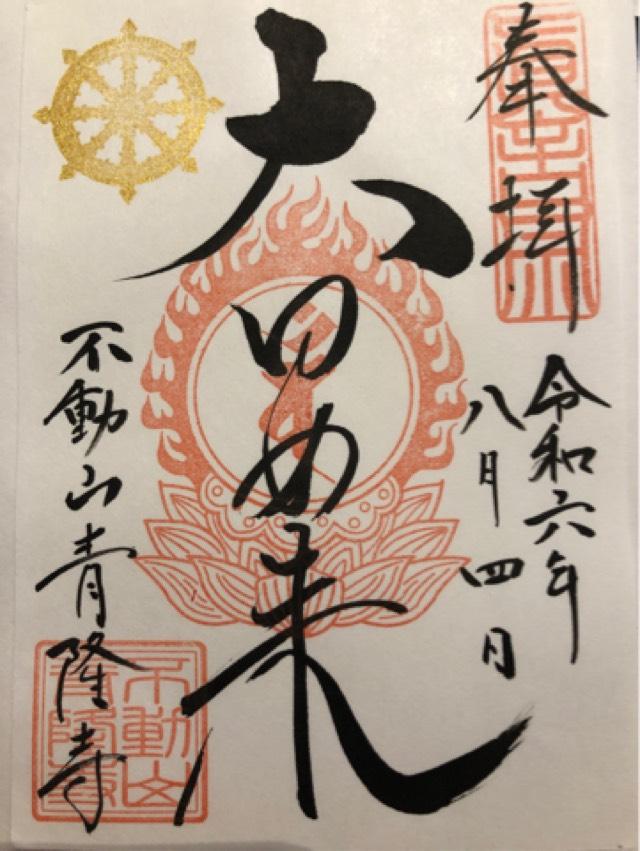 奉拝
令和六年
八月四日
大日如来
不動山青隆寺
不動山
青隆寺